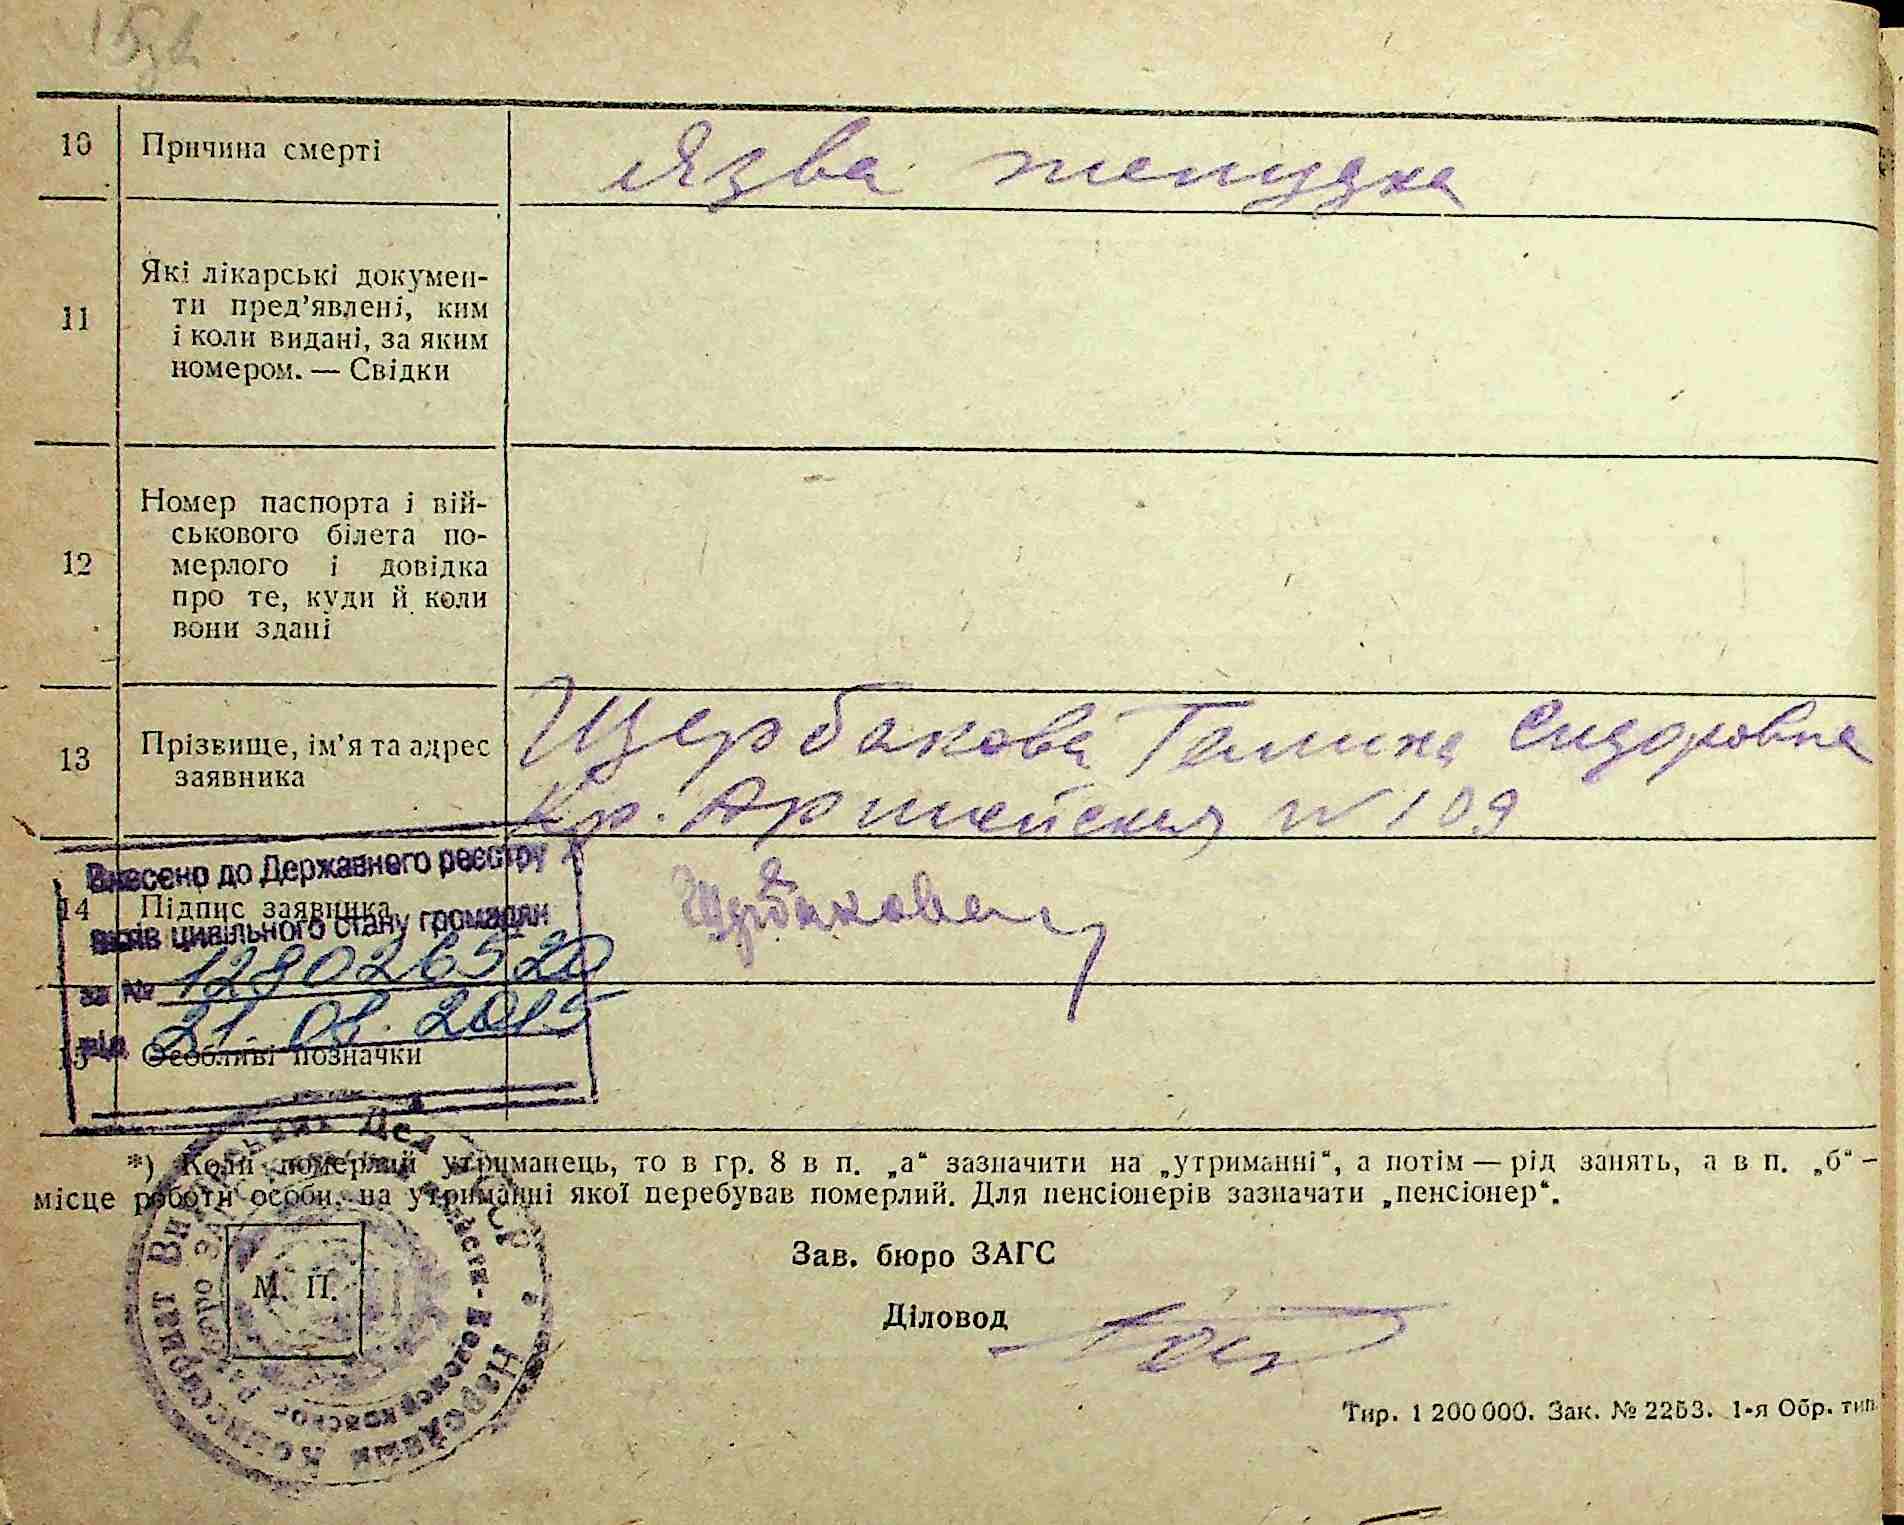 10 Причина смерті Язва желудка
11 Які лікарські докумен-
ти пред'явлені, ким
і коли видані, за яким
номером. — Свідки
12 Номер паспорта і вій-
ськового білета по-
мерлого і довідка
про те, куди й коли
вони здані
13 Прізвище, ім'я та адрес
заявника
Щербакова Галина Сидоровна
Кр. Армейская N 109
Внесено до Державного реєстру
14 Підпис заявника Щербакова
актів цивільного стану громадян
за № 128026520
від 21.01.2015
15 Особливі позначки
*) Коли померлий утриманець, то в гр. 8 в п. „а“ зазначити на „утриманні“, а потім — рід занять, а в п. „б“ -
місце роботи особи, на утриманні якої перебував померлий. Для пенсіонерів зазначати „пенсіонер“.
М. П.
Зав. бюро ЗАГС
Діловод
Народный Комиссариат Внутренних Дел
Тир. 1 200 000. Зак. № 2253. 1-я Обр. тип